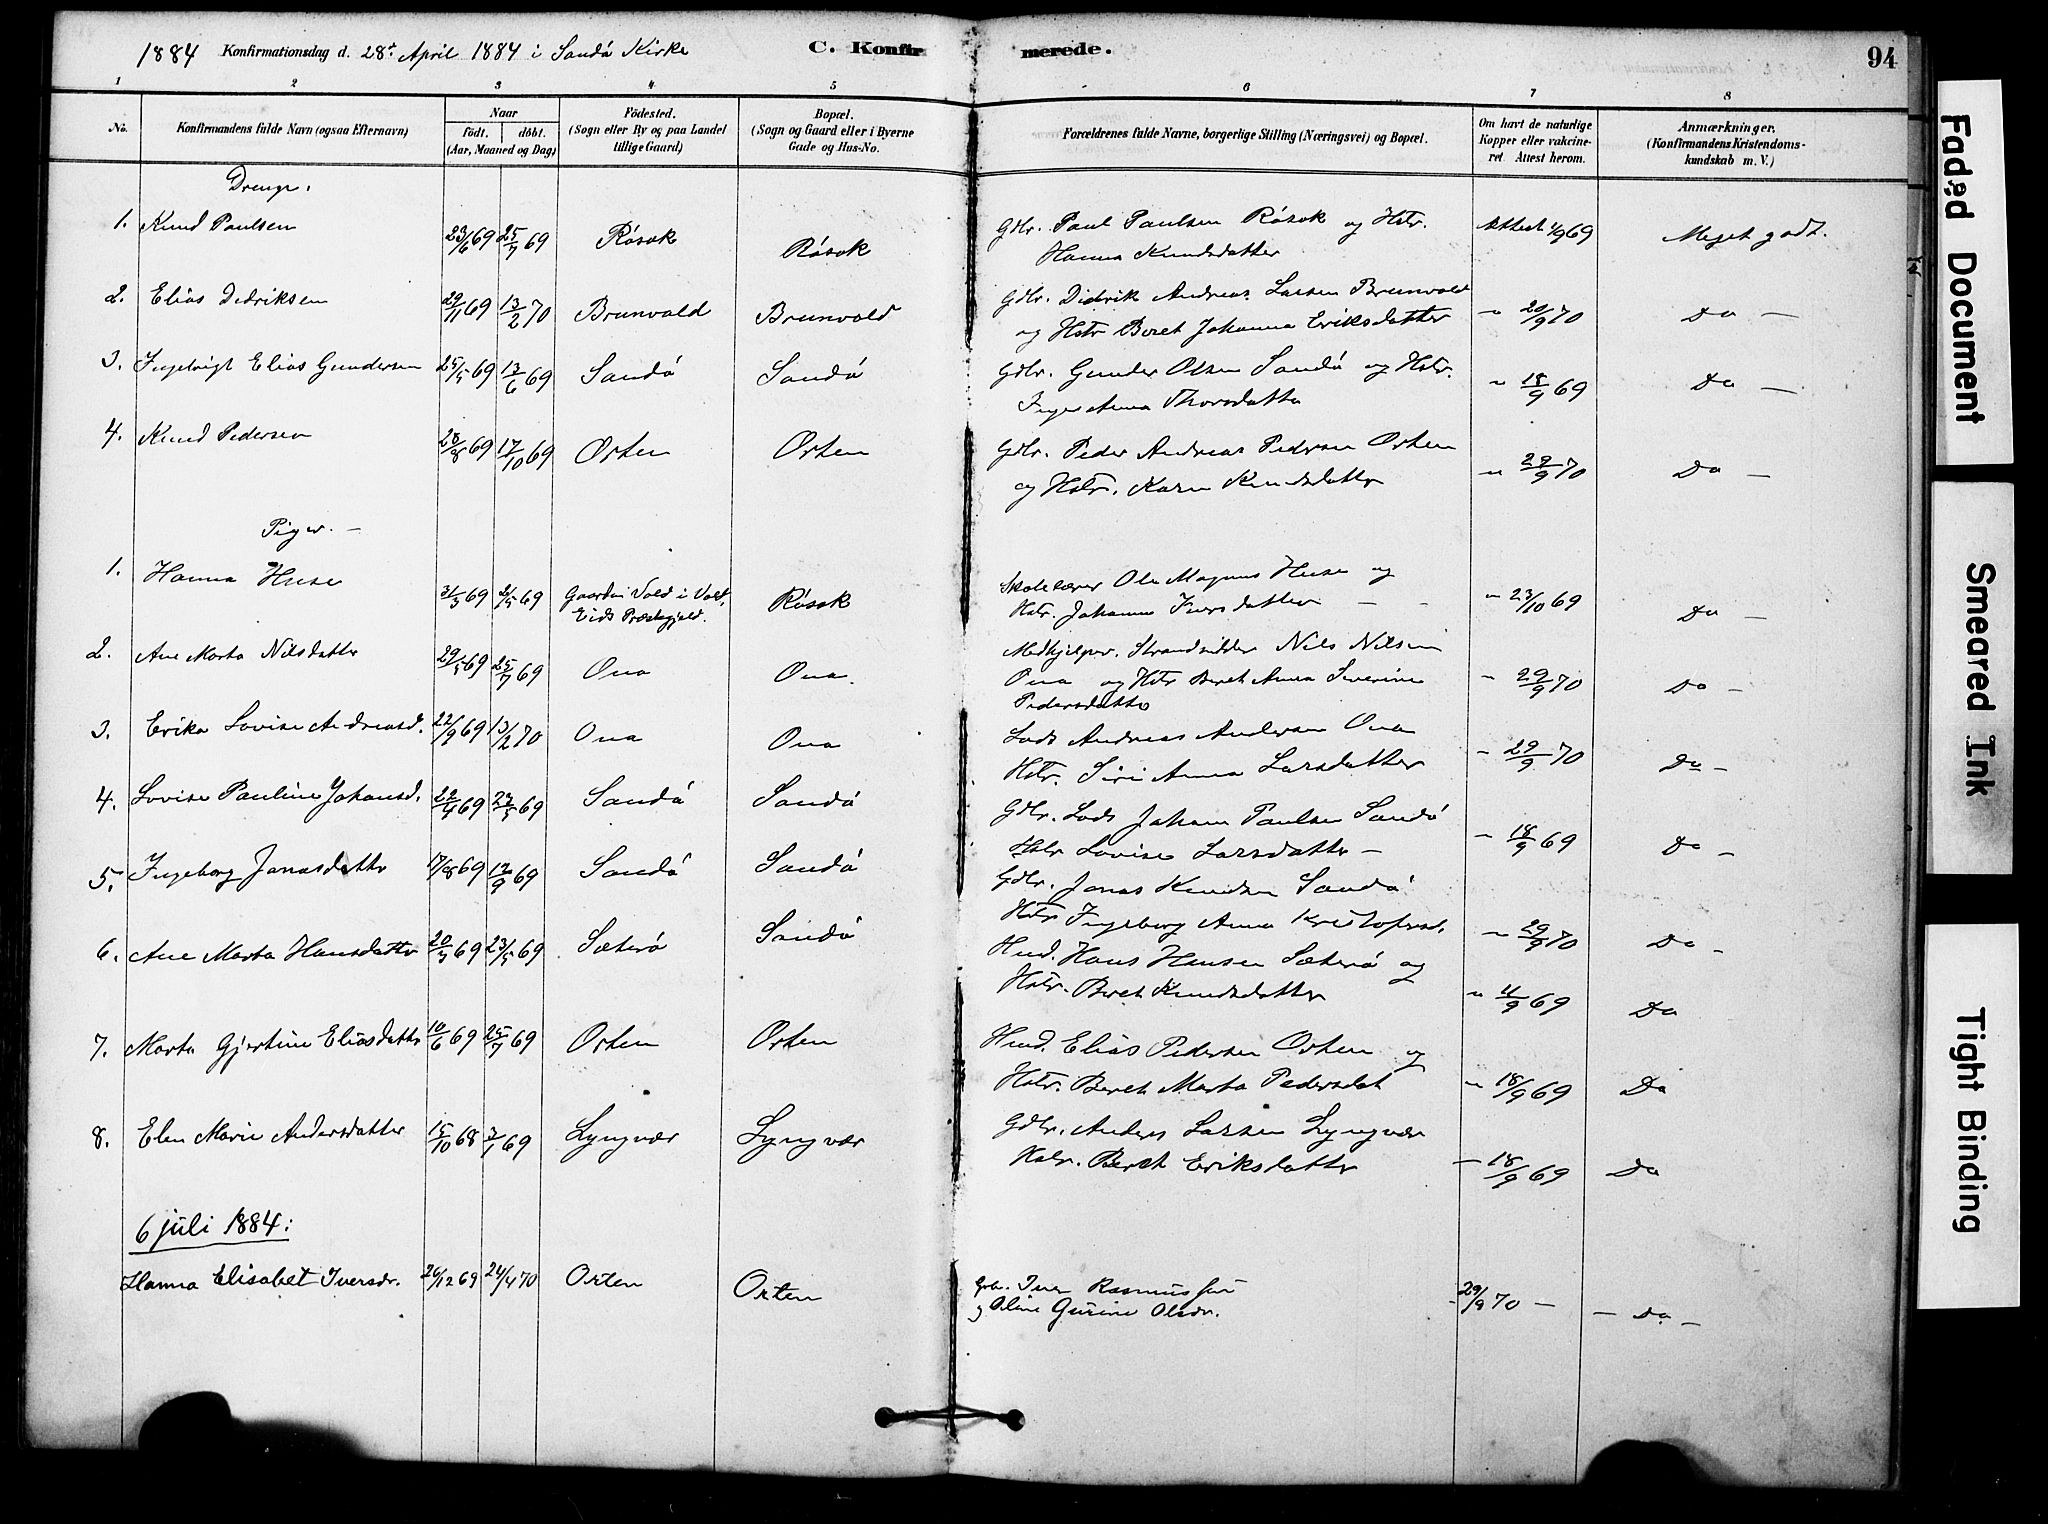 1884 Konfirmationsdag d. 28de April 1884 i Sandø Kirke C. Konfirmerede. 94
1 2 3 4 5 6 7 8
No. Konfirmandens fulde Navn (ogsaa Efternavn) Naar født. døbt. (Aar, Maaned og Dag) Fødested. (Sogn eller By og paa Landet tillige Gaard) Bopæl. (Sogn og Gaard eller i Byerne Gade og Hus-No. Forældrenes fulde Navne, borgerlige Stilling (Næringsvei) og Bopæl. Om havt de naturlige Kopper eller vakcineret. Attest herom. Anmærkninger. (Konfirmandens Kristendomskundskab m. V.)
Drenge.
1. Knud Paulsen 23/6 69 25/7 69 Røsok Røsok Gdbr. Paul Paulsen Røsok og Hstr. Attest 4/9 69 Meget godt.
Hanna Knudsdatter
2. Elias Didriksen 29/11 69 13/2 70 Brunvold Brunvold Gdbr. Didrik Andreas Larsen Brunvold
og Hstr Beret Johanna Eriksdatter " 20/9 70 Do —
3. Ingebrigt Elias Gundersen 25/5 69 13/6 69 Sandø Sandø Gdbr. Gunder Olsen Sandø og Hstr.
Inger Anna Thorsdatter " 18/9 69 Do —
4. Knud Pedersen 28/8 69 17/10 69 Orten Orten Gdbr. Peder Andreas Pedersen Orten
og Hstr. Karen Knudsdatter " 29/9 70 Do —
Piger. —
1. Hanna Huse 31/3 69 2/5 69 Gaarden Vold i Vold, Eids Præstegjeld. Røsok Skolelærer Ole Magnus Huse og
Hstr. Johanna Iversdatter — " 23/10 69 Do —
2. Ane Marta Nilsdatter 29/5 69 25/7 69 Ona Ona. Medhjelper. Strandsidder Nils Nilsen
Ona og Hstr Beret Anna Severine " 29/9 70 Do —
Pedersdatter
3. Erika Lovise Andreasd. 22/9 69 13/2 70 Ona Ona Lods Andreas Andersen Ona
Hstr. Siri Anna Larsdatter - 29/9 70 Do —
4. Lovise Pauline Johansd. 22/4 69 23/5 69 Sandø Sandø Gdbr. Lods Johan Paulsen Sandø
Hstr Lovise Larsdatter — - 18/9 69 Do —
5. Ingeborg Jonasdatter 17/8 69 12/9 69 Sandø Sandø Gdbr. Jonas Knudsen Sandø
Hstr Ingeborg Anna Kristofersd. " 29/9 70 Do —
6. Ane Marta Hansdatter 20/3 69 23/5 69 Sæterø Sandø Hmd. Hans Hansen Sæterø og
Hstr. Beret Knudsdatter " 11/9 69 Do
7. Marta Gjertine Eliasdatter 10/6 69 25/7 69 Orten Orten Hmd. Elias Pedersen Orten og
Hstr. Beret Marta Pedersdat " 18/9 69 Do
8. Elen Marie Andersdatter 15/10 68 3/1 69 Lyngvær Lyngvær Gdbr. Anders Larsen Lyngvær
Hstr. Beret Eriksdatter — 18/9 69 Do
6 juli 1884:
Hanna Elisabet Iversdr. 26/12 69 24/4 70 Orten Orten Gbr. Iver Rasmussen
og Oline Gurine Olsdr. - 29/9 70 — — Do —
Faded Document
Smeared Ink
Tight Binding